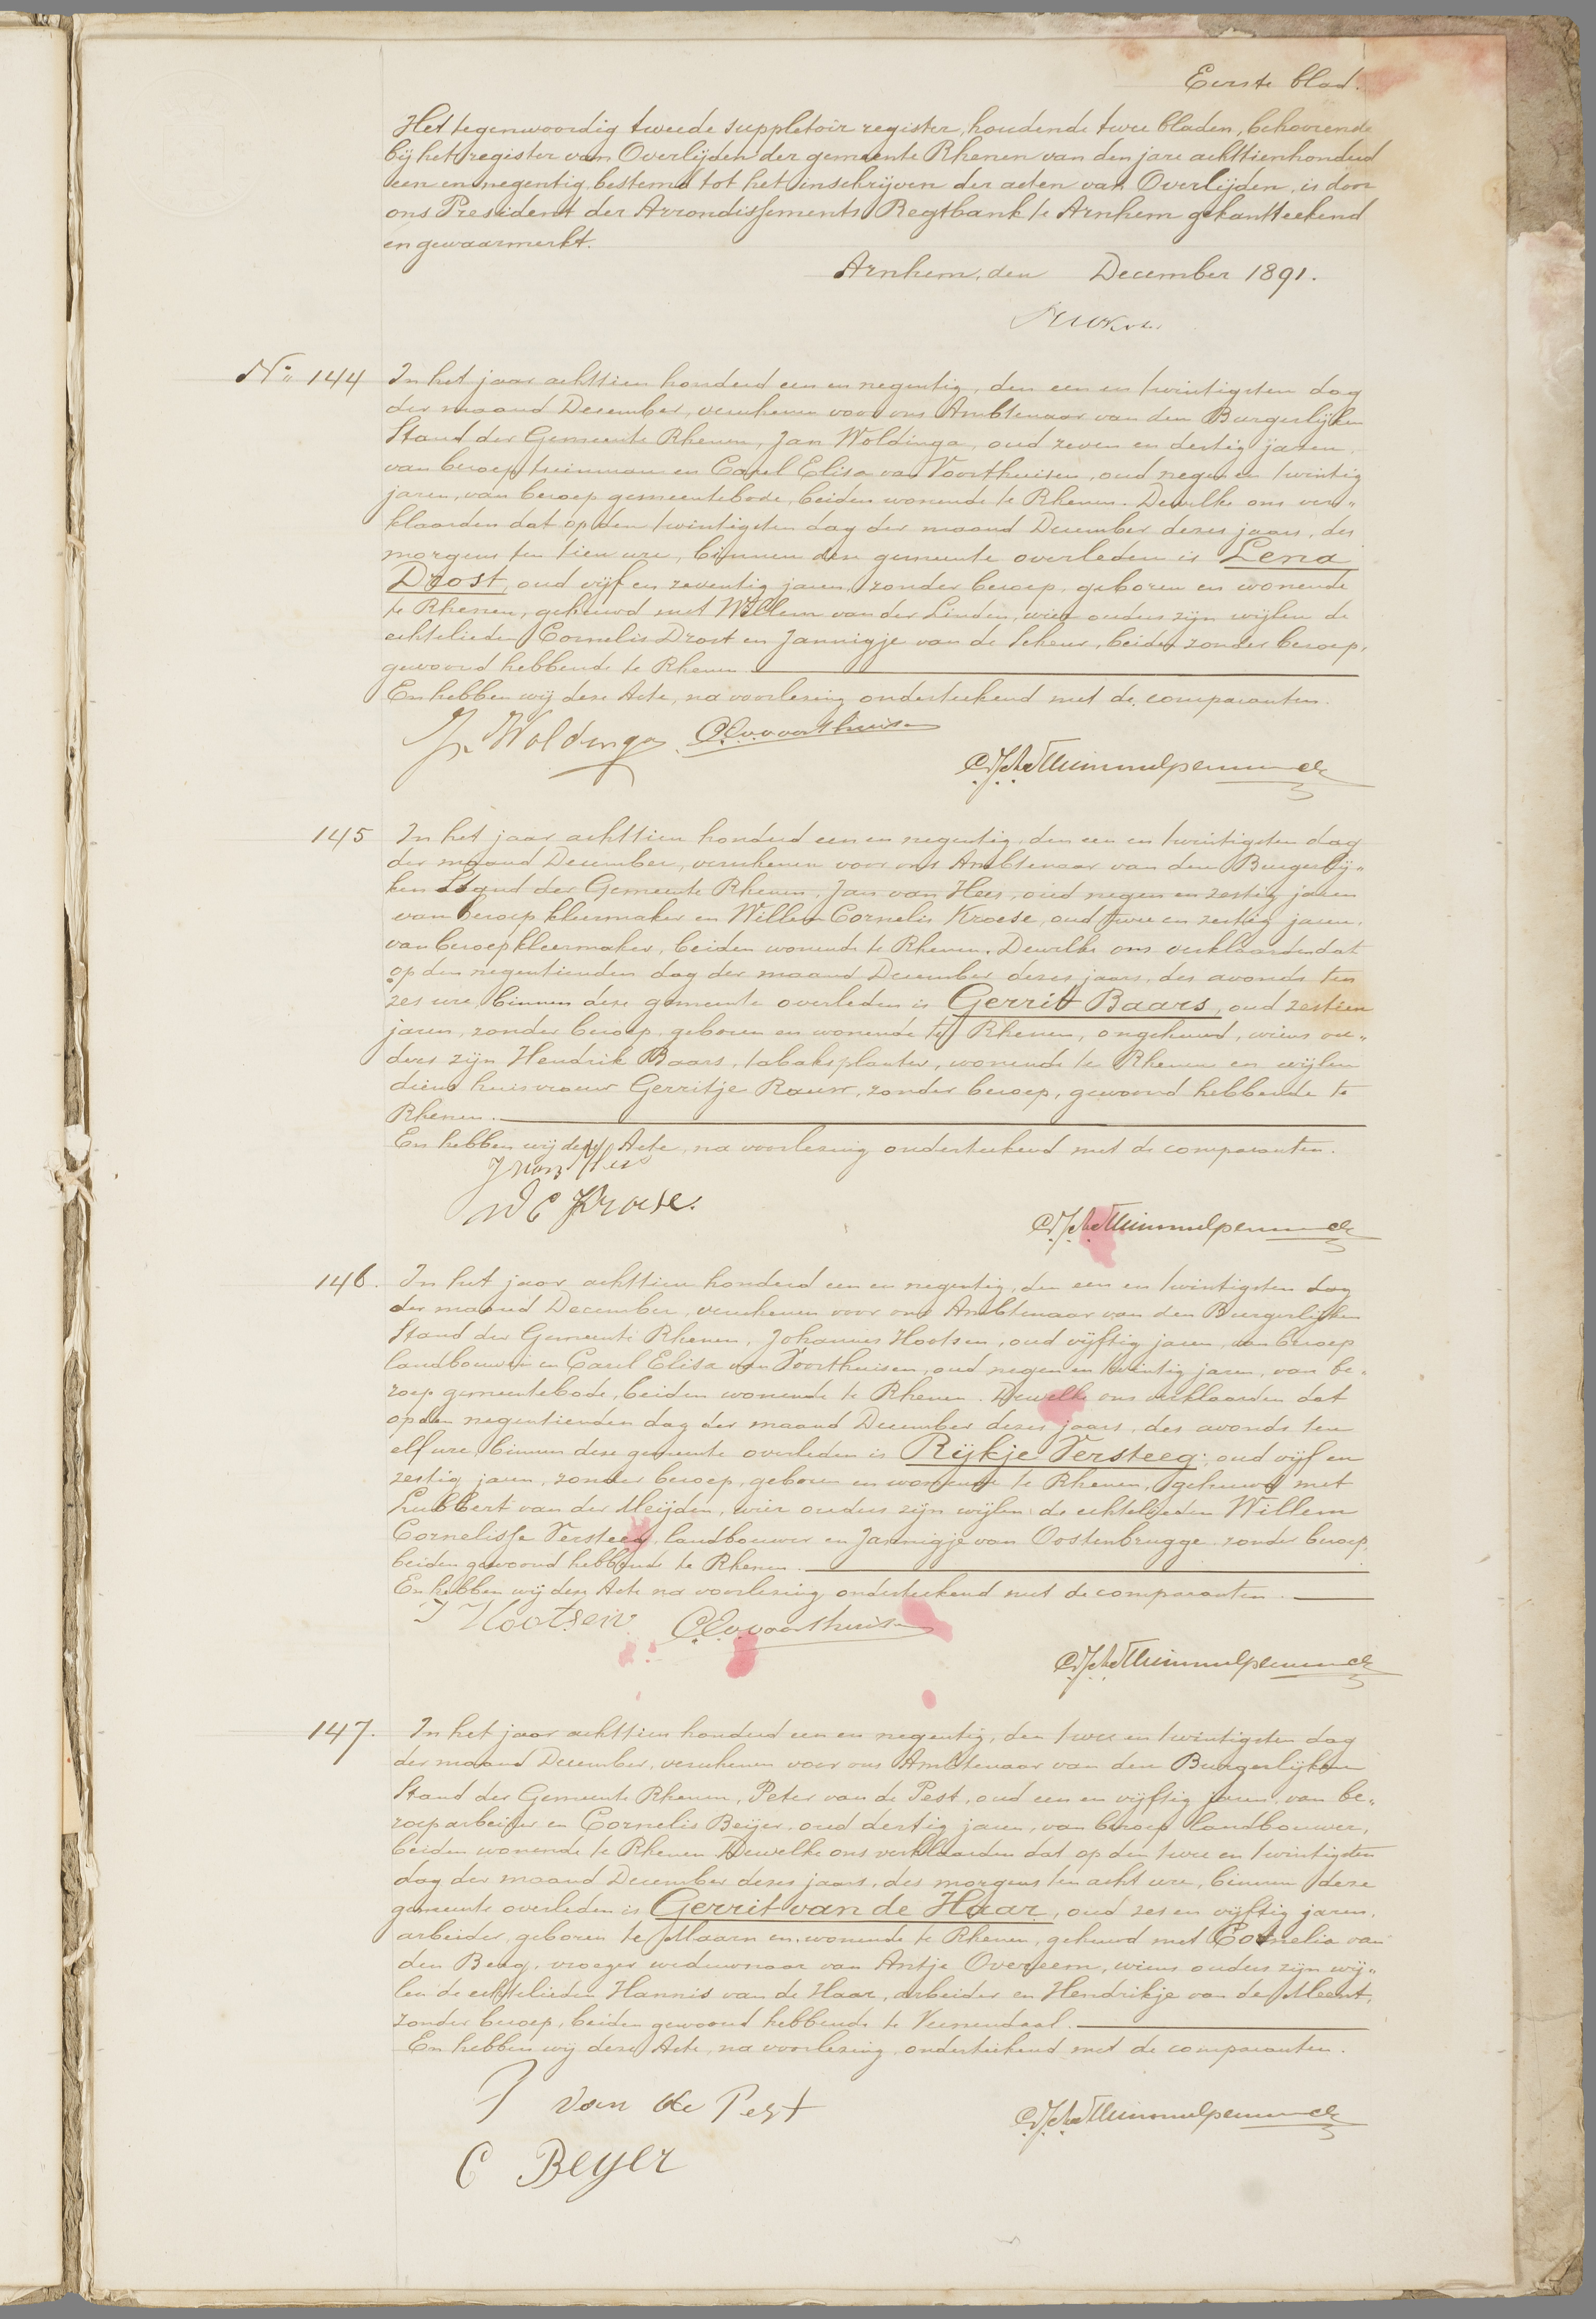 Eerste blad.
Het tegenwoordig tweede suppletoir register, houdende twee bladen, behoorende
bij het register van Overlijden der gemeente Rhenen van den jare achttienhonderd
een en negentig, bestemd tot het inschrijven der acten van Overlijden, is door
ons President der Arrondissements Regtbank te Arnhem gekantteekend
en gewaarmerkt.
Arnhem, den December 1891.
No. 144 In het jaar achttien honderd een en negentig, den een en twintigsten dag
der maand December, verschenen voor ons Ambtenaar van den Burgerlijken
Stand der Gemeente Rhenen, Jan Woldinga, oud zeven en dertig jaren,
van beroep tuinman en Carel Elisa van Voorthuisen, oud negen en twintig
jaren, van beroep gemeentebode, beiden wonende te Rhenen. Dewelke ons ver„
klaarden dat op den twintigsten dag der maand December dezes jaars, des
morgens ten tien ure, binnen deze gemeente overleden is Lena
Drost, oud vijf en zeventig jaren, zonder beroep, geboren en wonende
te Rhenen, gehuwd met Willem van der Linden, wier ouders zijn wijlen de
echtelieden Cornelis Drost en Jannigje van de Scheur, beiden zonder beroep,
gewoond hebbende te Rhenen
En hebben wij deze Acte, na voorlezing onderteekend met de comparanten.
Jn Woldinga C.E.v.voorthuisen
145 In het jaar achttien honderd een en negentig, den een en twintigsten dag
der maand December, verschenen voor ons Ambtenaar van den Burgerlij„
ken Stand der Gemeente Rhenen, Jan van Hees, oud negen en zestig jaren
van beroep kleermaker en Willem Cornelis Kroese, oud twee en zestig jaren,
van beroep kleermaker, beiden wonende te Rhenen. Dewelke ons verklaarden dat
op den negentienden dag der maand December dezes jaars, des avonds ten
zes ure, binnen deze gemeente overleden is Gerrit Baars, oud zestien
jaren, zonder beroep, geboren en wonende te Rhenen, ongehuwd, wiens ou„
ders zijn Hendrik Baars, tabaksplanter, wonende te Rhenen en wijlen
diens huisvrouw Gerritje Rauw, zonder beroep, gewoond hebbende te
Rhenen.
En hebben wij deze Acte, na voorlezing onderteekend met de comparanten.
J van Hees
W C Kroese.
146. In het jaar achttien honderd een en negentig, den een en twintigsten dag
der maand December, verschenen voor ons Ambtenaar van den Burgerlijken
Stand der Gemeente Rhenen, Johannes Hootsen, oud vijftig jaren, van beroep
landbouwer en Carel Elisa van Voorthuisen, oud negen en twintig jaren, van be„
roep gemeentebode, beiden wonende te Rhenen. Dewelke ons verklaarden dat
op den negentienden dag der maand December dezes jaars, des avonds ten
elf ure, binnen deze gemeente overleden is Rijkje Versteeg, oud vijf en
zestig jaren, zonder beroep, geboren en wonende te Rhenen, gehuwd met
Lubbert van der Meijden, wier ouders zijn wijlen de echtelieden Willem
Cornelisse Versteeg, landbouwer en Jannigje van Oostenbrugge zonder beroep,
beiden gewoond hebbende te Rhenen.
En hebben wij deze Acte na voorlezing onderteekend met de comparanten.
J Hootsen C.E.v.voorthuisen
147. In het jaar achttien honderd een en negentig, den twee en twintigsten dag
der maand December, verschenen voor ons Ambtenaar van den Burgerlijken
Stand der Gemeente Rhenen, Peter van de Pest, oud een en vijftig jaren, van be„
roep arbeider en Cornelis Beijer, oud dertig jaren, van beroep landbouwer,
beiden wonende te Rhenen. Dewelke ons verklaarden dat op den twee en twintigsten
dag der maand December dezes jaars, des morgens ten acht ure, binnen deze
gemeente overleden is Gerrit van de Haar, oud zes en vijftig jaren,
arbeider, geboren te Maarn en wonende te Rhenen, gehuwd met Cornelia van
den Berg, vroeger weduwnaar van Antje Overeem, wiens ouders zijn wij„
len de echtelieden Hannis van de Haar, arbeider en Hendrikje van de Meent,
zonder beroep, beiden gewoond hebbende te Veenendaal.
En hebben wij deze Acte, na voorlezing onderteekend met de comparanten.
van de Pest
C Beyer